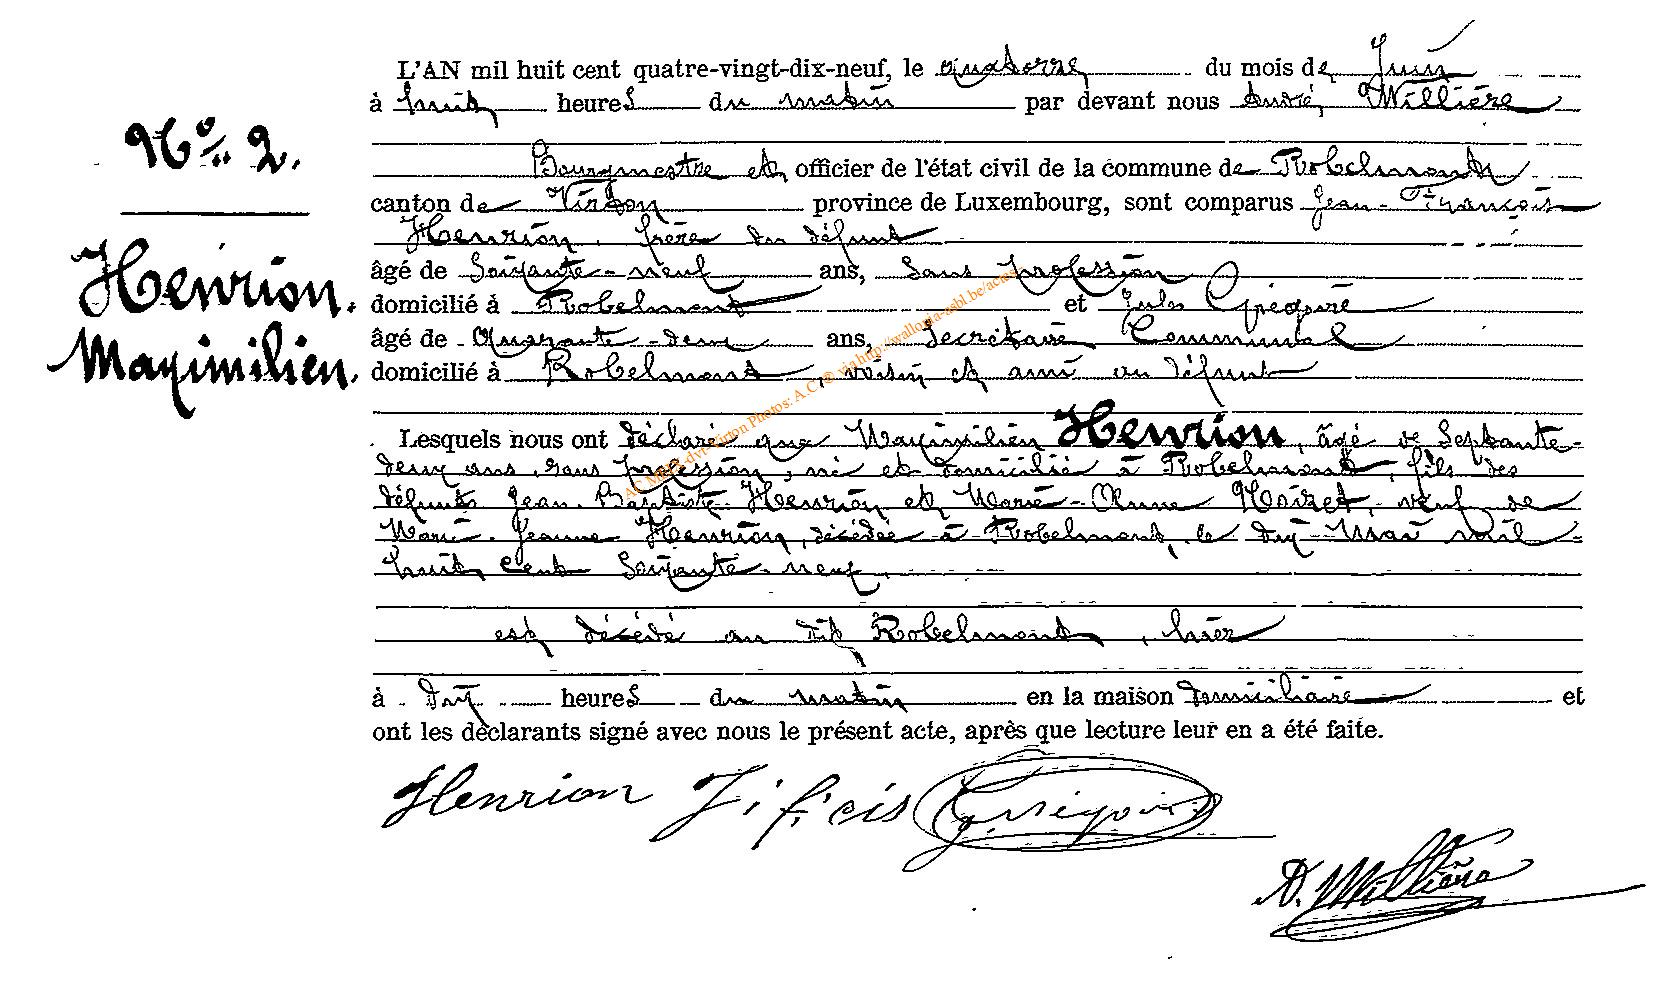 L'AN mil huit cent quatre-vingt-dix-neuf, le quatorze du mois de Juin
à huit heures du matin par devant nous André Willière
Nº 2.
Bourgmestre et officier de l'état civil de la commune de Robelmont
canton de Virton province de Luxembourg, sont comparus Jean-François
Henrion, frère du défunt
Henrion.
Maximilien.
âgé de Soixante-neuf ans, sans profession
domicilié à Robelmont et Jules Grégoire
âgé de Quarante-deux ans, Secrétaire Communal
domicilié à Robelmont, voisin et ami du défunt
Lesquels nous ont déclaré que Maximilien Henrion, âgé de Septante-
deux ans, sans profession, né et domicilié à Robelmont, fils des
défunts Jean-Baptiste Henrion et Marie-Anne Noizet, veuf de
Marie-Jeanne Henrion, décédée à Robelmont, le dix Mai mil
huit cent Soixante-neuf,
est décédé au dit Robelmont, hier
à dix heures du matin en la maison domiciliaire et
ont les déclarants signé avec nous le présent acte, après que lecture leur en a été faite.
Henrion J. f. cis Grégoire
A. Willière
via http://wallonia-asbl.be/acas